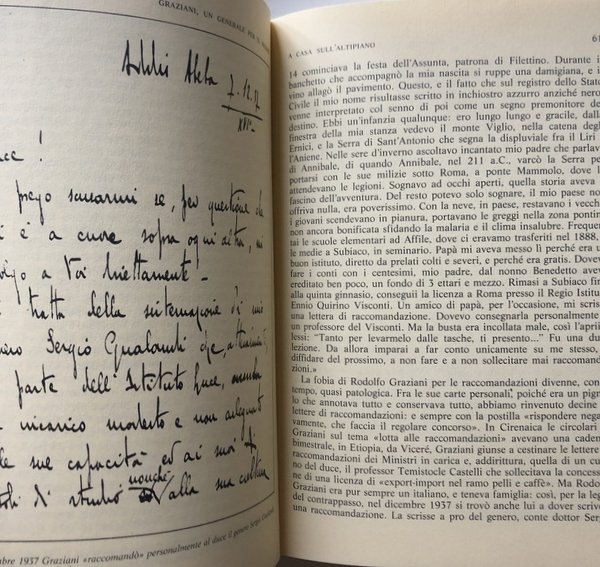 GRAZIANI, UN GENERALE PER
Addis Abeba
7.12.
XVI
!
prego scusarmi se, per questione che
è a cuore sopra ogni altra, mi
a Voi direttamente.
tratta della sistemazione di mio
Sergio Gualandi che,
parte dell'Istituto Luce,
incarico modesto e non adeguato
sue capacità ed ai suoi
di studio nonché alla sua
1937 Graziani «raccomandò» personalmente al duce il genero Sergio
A CASA SULL'ALTIPIANO
61
14 cominciava la festa dell'Assunta, patrona di Filettino. Durante il
banchetto che accompagnò la mia nascita si ruppe una damigiana, e il
vino allagò il pavimento. Questo, e il fatto che sul registro dello Stato
Civile il mio nome risultasse scritto in inchiostro azzurro anziché nero,
venne interpretato col senno di poi come un segno premonitore del
destino. Ebbi un'infanzia qualunque: ero lungo lungo e gracile, dalla
finestra della mia stanza vedevo il monte Viglio, nella catena degli
Ernici, e la Serra di Sant'Antonio che segna la displuviale fra il Liri e
l'Aniene. Nelle sere d'inverno ascoltavo incantato mio padre che parlava
di quando, di quando Annibale, nel 211 a.C., varcò la Serra per
portarsi con le sue milizie sotto Roma, a ponte Mammolo, dove lo
attendevano le legioni. Sognavo ad occhi aperti, quella storia aveva il
fascino dell'avventura. Del resto potevo solo sognare, il mio paese non
offriva nulla, era poverissimo. Con la neve, in paese, restavano i vecchi,
i giovani scendevano in pianura, portavano le greggi nella zona pontina
non ancora bonificata sfidando la malaria e il clima insalubre. Frequen-
tai le scuole elementari ad Affile, dove ci eravamo trasferiti nel 1888,
le medie a Subiaco, in seminario. Papà mi aveva messo lì perché era un
buon istituto, diretto da prelati colti e severi, e perché era gratis. Dovevo
fare i conti con i centesimi, mio padre, dal nonno Benedetto aveva
ereditato ben poco, un fondo di 3 ettari e mezzo. Rimasi a Subiaco fino
alla quinta ginnasio, conseguii la licenza a Roma presso il Regio Istituto
Ennio Quirino Visconti. Un amico di papà, per l'occasione, mi scrisse
una lettera di raccomandazione. Dovevo consegnarla personalmente a
un professore del Visconti. Ma la busta era incollata male, così l'aprii e
lessi: "Tanto per levarmelo dalle tasche, ti presento..." Fu una dura
lezione. Da allora imparai a far conto unicamente su me stesso, a
diffidare del prossimo, a non fare e a non sollecitare mai raccomanda-
zioni.»
La fobia di Rodolfo Graziani per le raccomandazioni divenne, con il
tempo, quasi patologica. Fra le sue carte personali, poiché era un pignolo
che annotava tutto e conservava tutto, abbiamo rinvenuto decine di
lettere di raccomandazioni: e sempre con la postilla «rispondere negati-
vamente, che faccia il regolare concorso». In Cirenaica le circolari di
Graziani sul tema «lotta alle raccomandazioni» avevano una cadenza
bimestrale, in Etiopia, da Viceré, Graziani giunse a cestinare le lettere di
raccomandazioni dei Ministri in carica e, addirittura, quella di un cu
no del duce, il professor Temistocle Castelli che sollecitava la concessio
ne di una licenza di «export-import nel ramo pelli e caffè». Ma Rodolfo
Graziani era pur sempre un italiano, e teneva famiglia: così, per la legge
del contrappasso, nel dicembre 1937 si trovò anche lui a dover scrivere
una raccomandazione. La scrisse a pro del genero, conte dottor Sergio